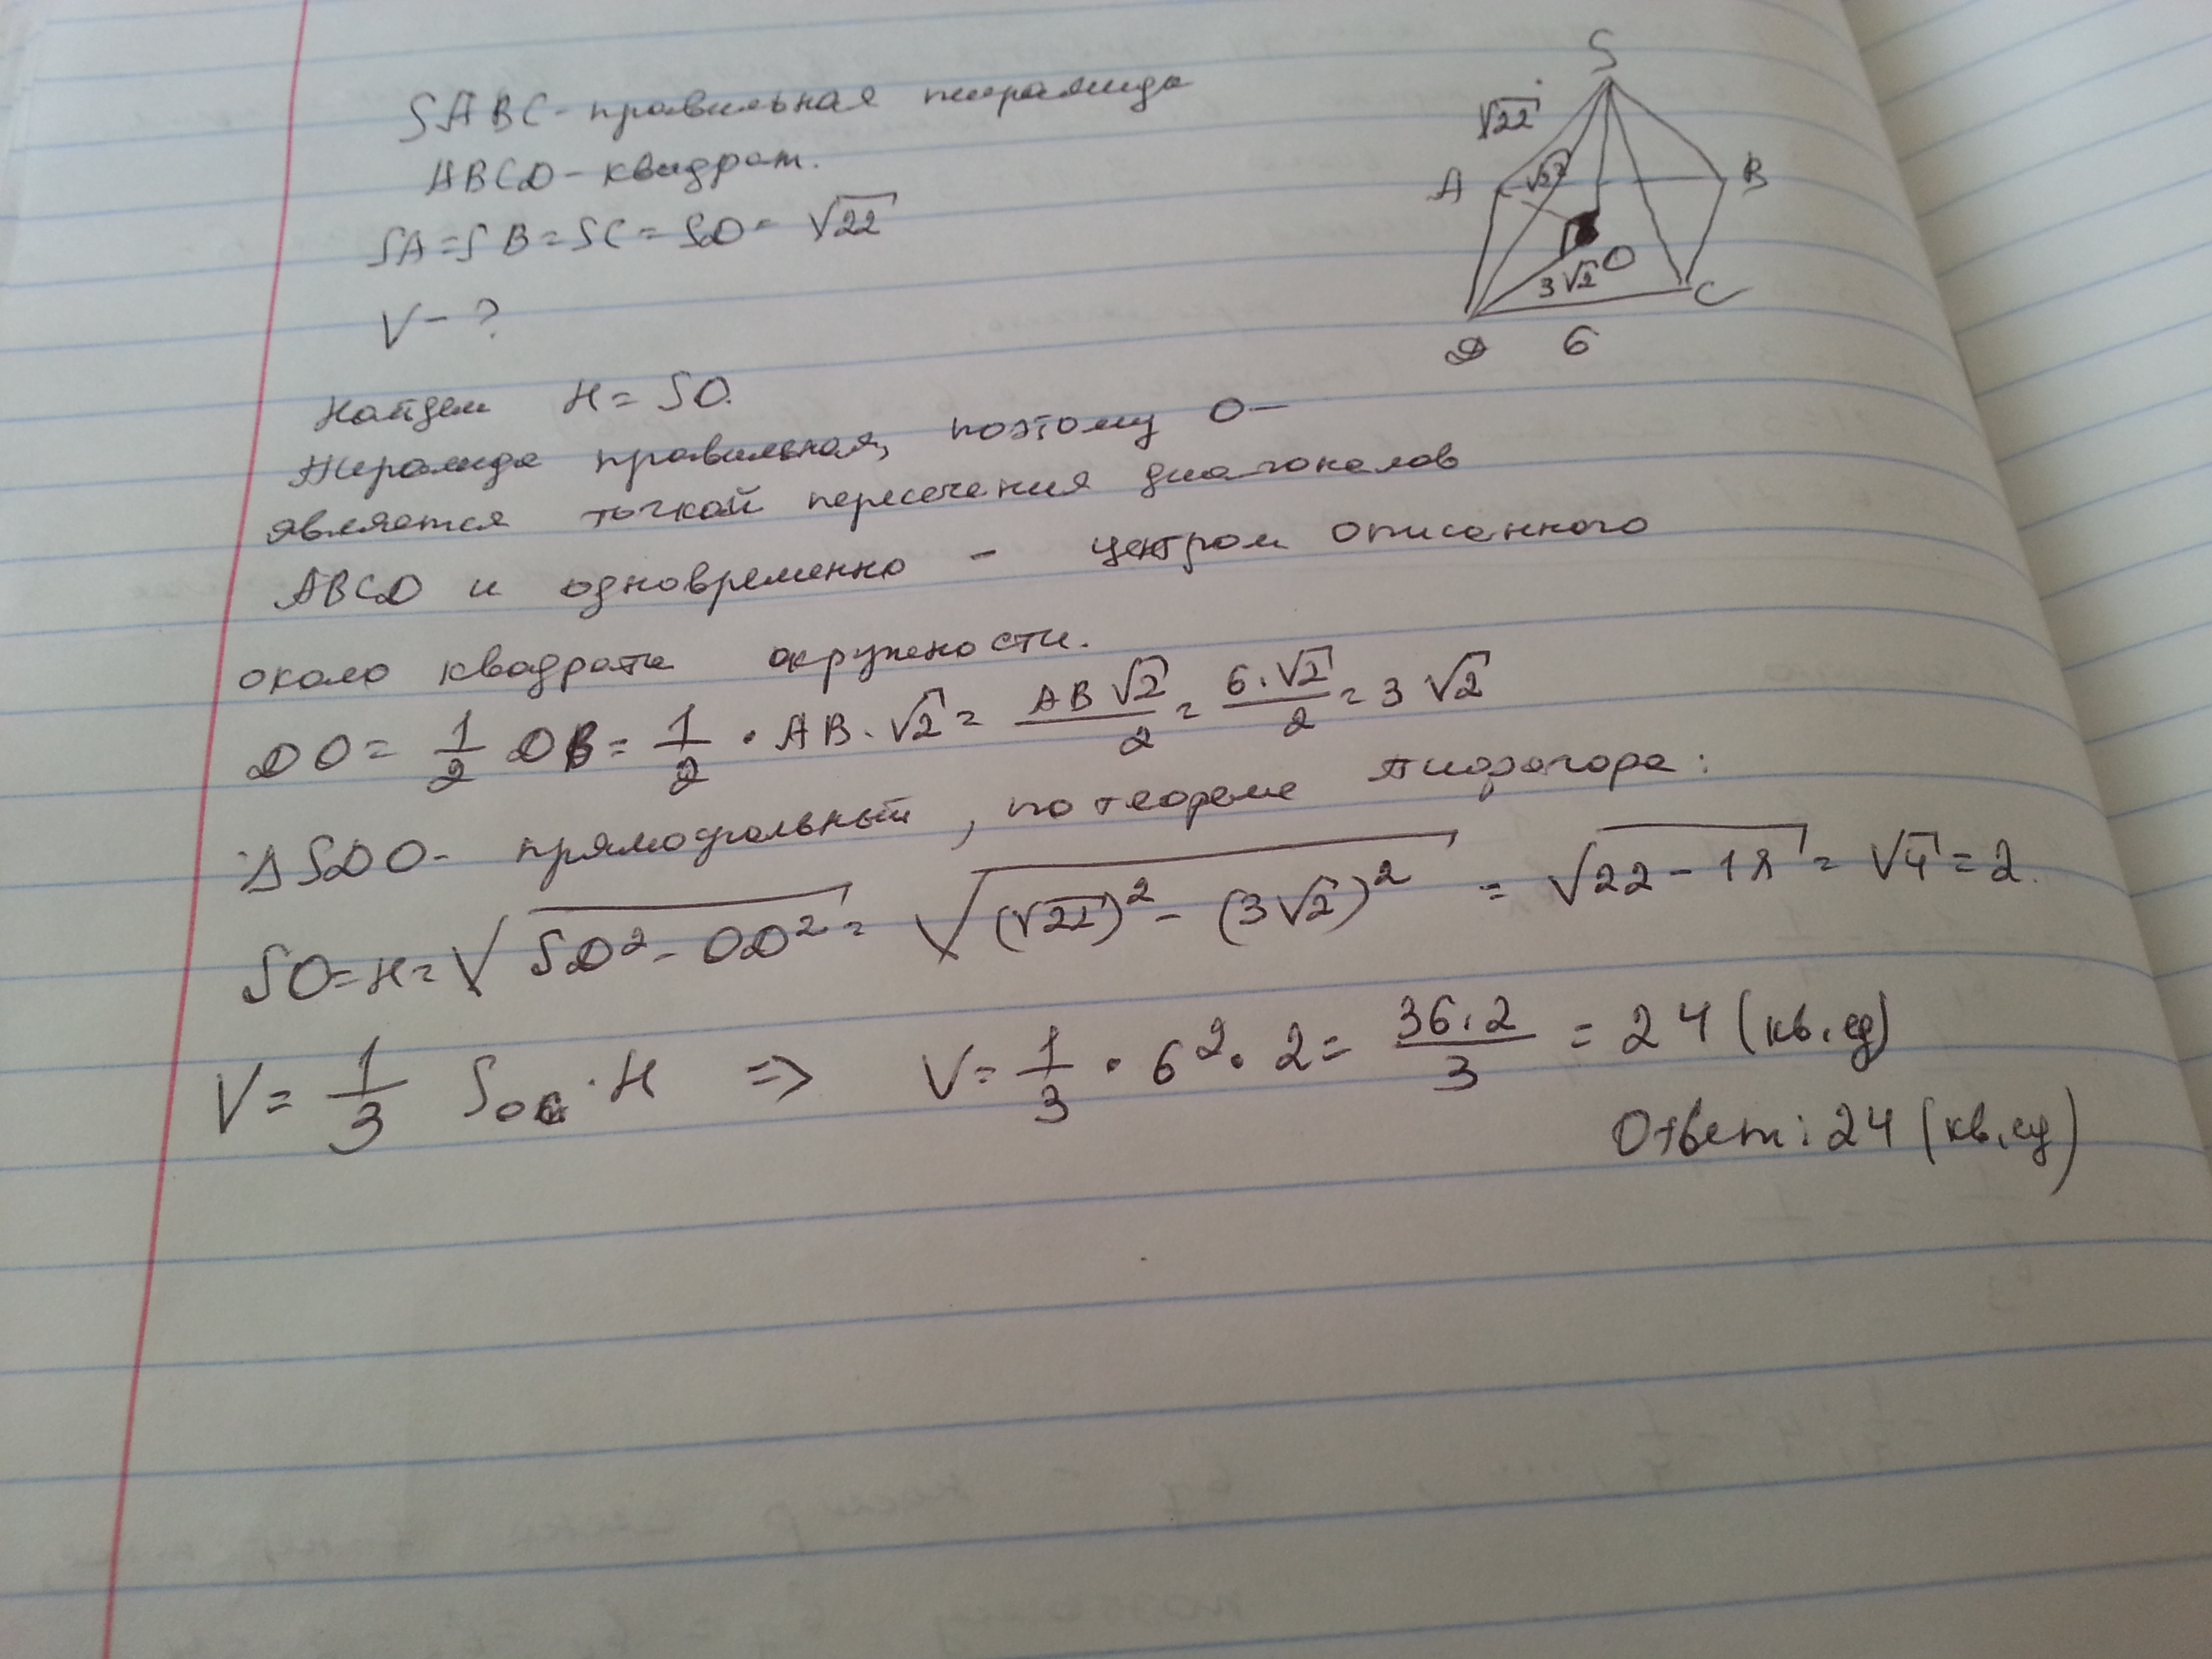 SABC - правильная пирамида
ABCD - квадрат.
SA = SB = SC = SD = √22
V - ?
S
√22
A
√22
B
O
3√2
C
D
6
Найдем H = SO.
Пирамида правильная, поэтому O -
является точкой пересечения диагоналов
ABCD и одновременно - центром описанного
около квадрата окружности.
DO = 1/2 DB = 1/2 · AB · √2 = AB√2/2 = 6·√2/2 = 3√2
Δ SDO - прямоугольный, по теореме Пифагора:
SO = H = √(SD² - OD²) = √((√22)² - (3√2)²) = √(22 - 18) = √4 = 2.
V = 1/3 Sосн · H => V = 1/3 · 6² · 2 = 36·2/3 = 24 (кв.ед)
Ответ: 24 (кв.ед)